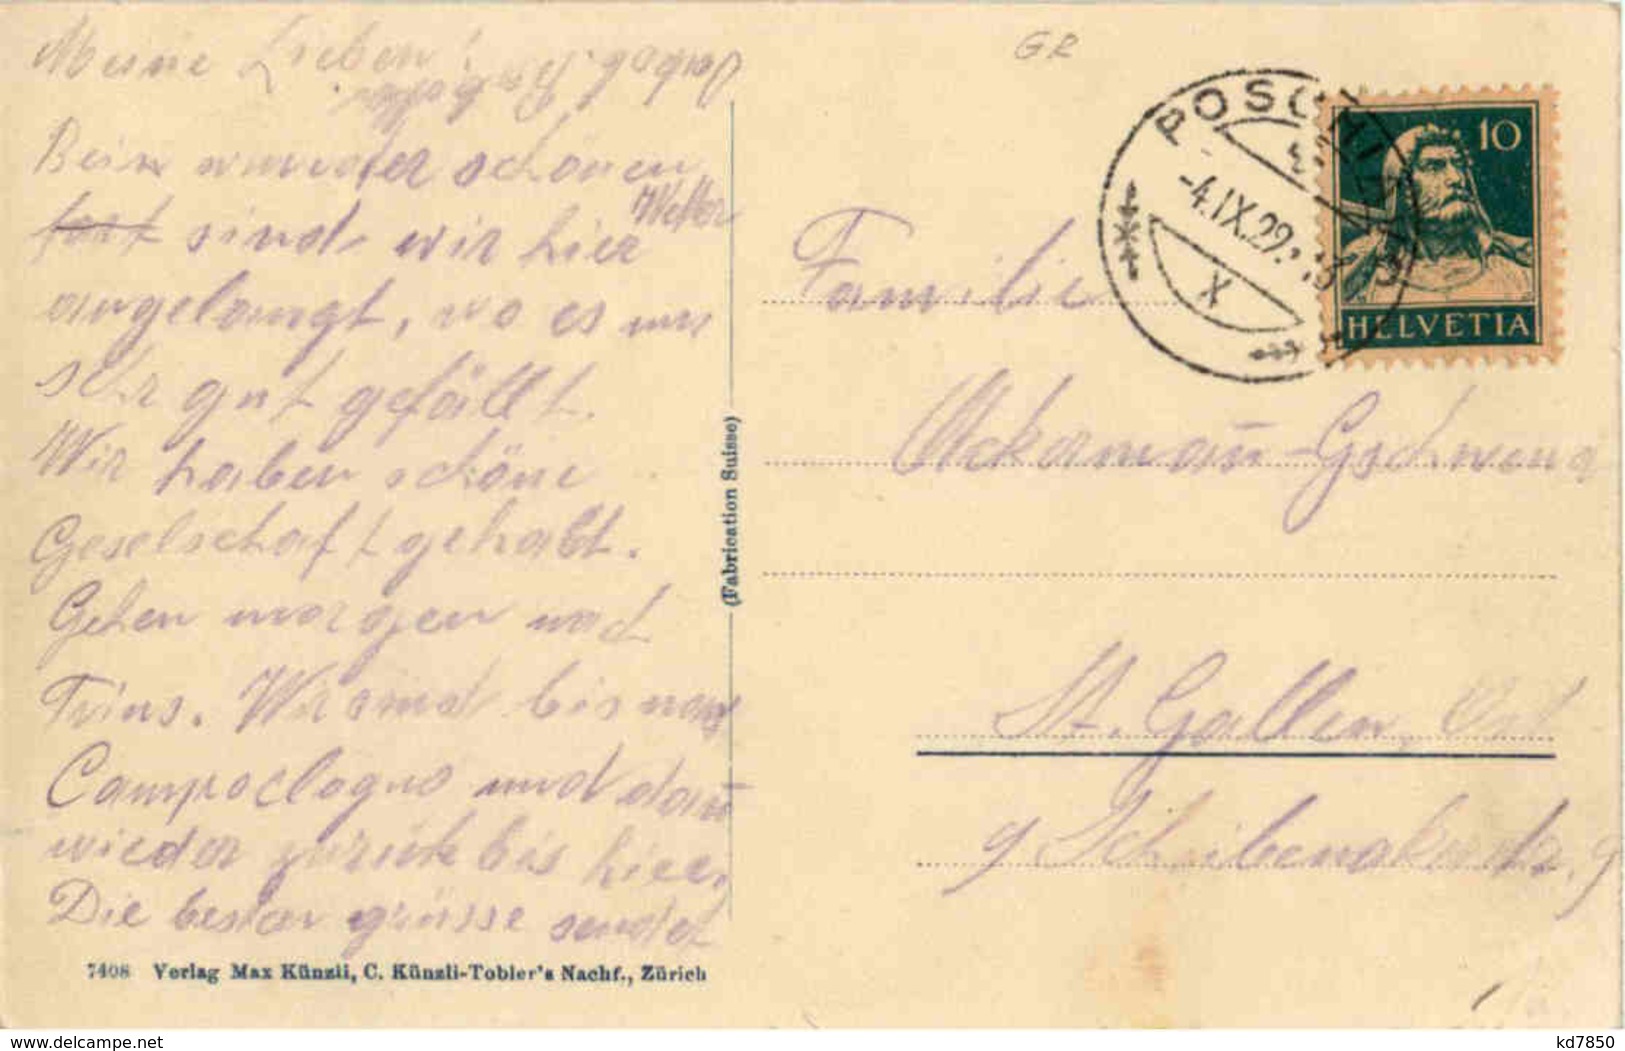 Meine Lieben!
Beim wunder schönen
Wetter
sind wir hier
angelangt, wo es uns
sehr gut gefällt.
Wir haben schöne
Geselschaft gehabt.
Gehen morgen nach
Trins. Wir sind bis nach
Campoclogno und dan̄
wieder zurück bis hier.
Die besten grüsse sendet
7408 Verlag Max Künzli, C. Künzli-Tobler's Nachf., Zürich
(Fabrication Suisse)
GR
POSCHIAVO
-4.IX.29.
X
10
HELVETIA
Familie
Ackerman̄-Gschwend
St. Gallen, Ost
9
kd7850
www.delcampe.net